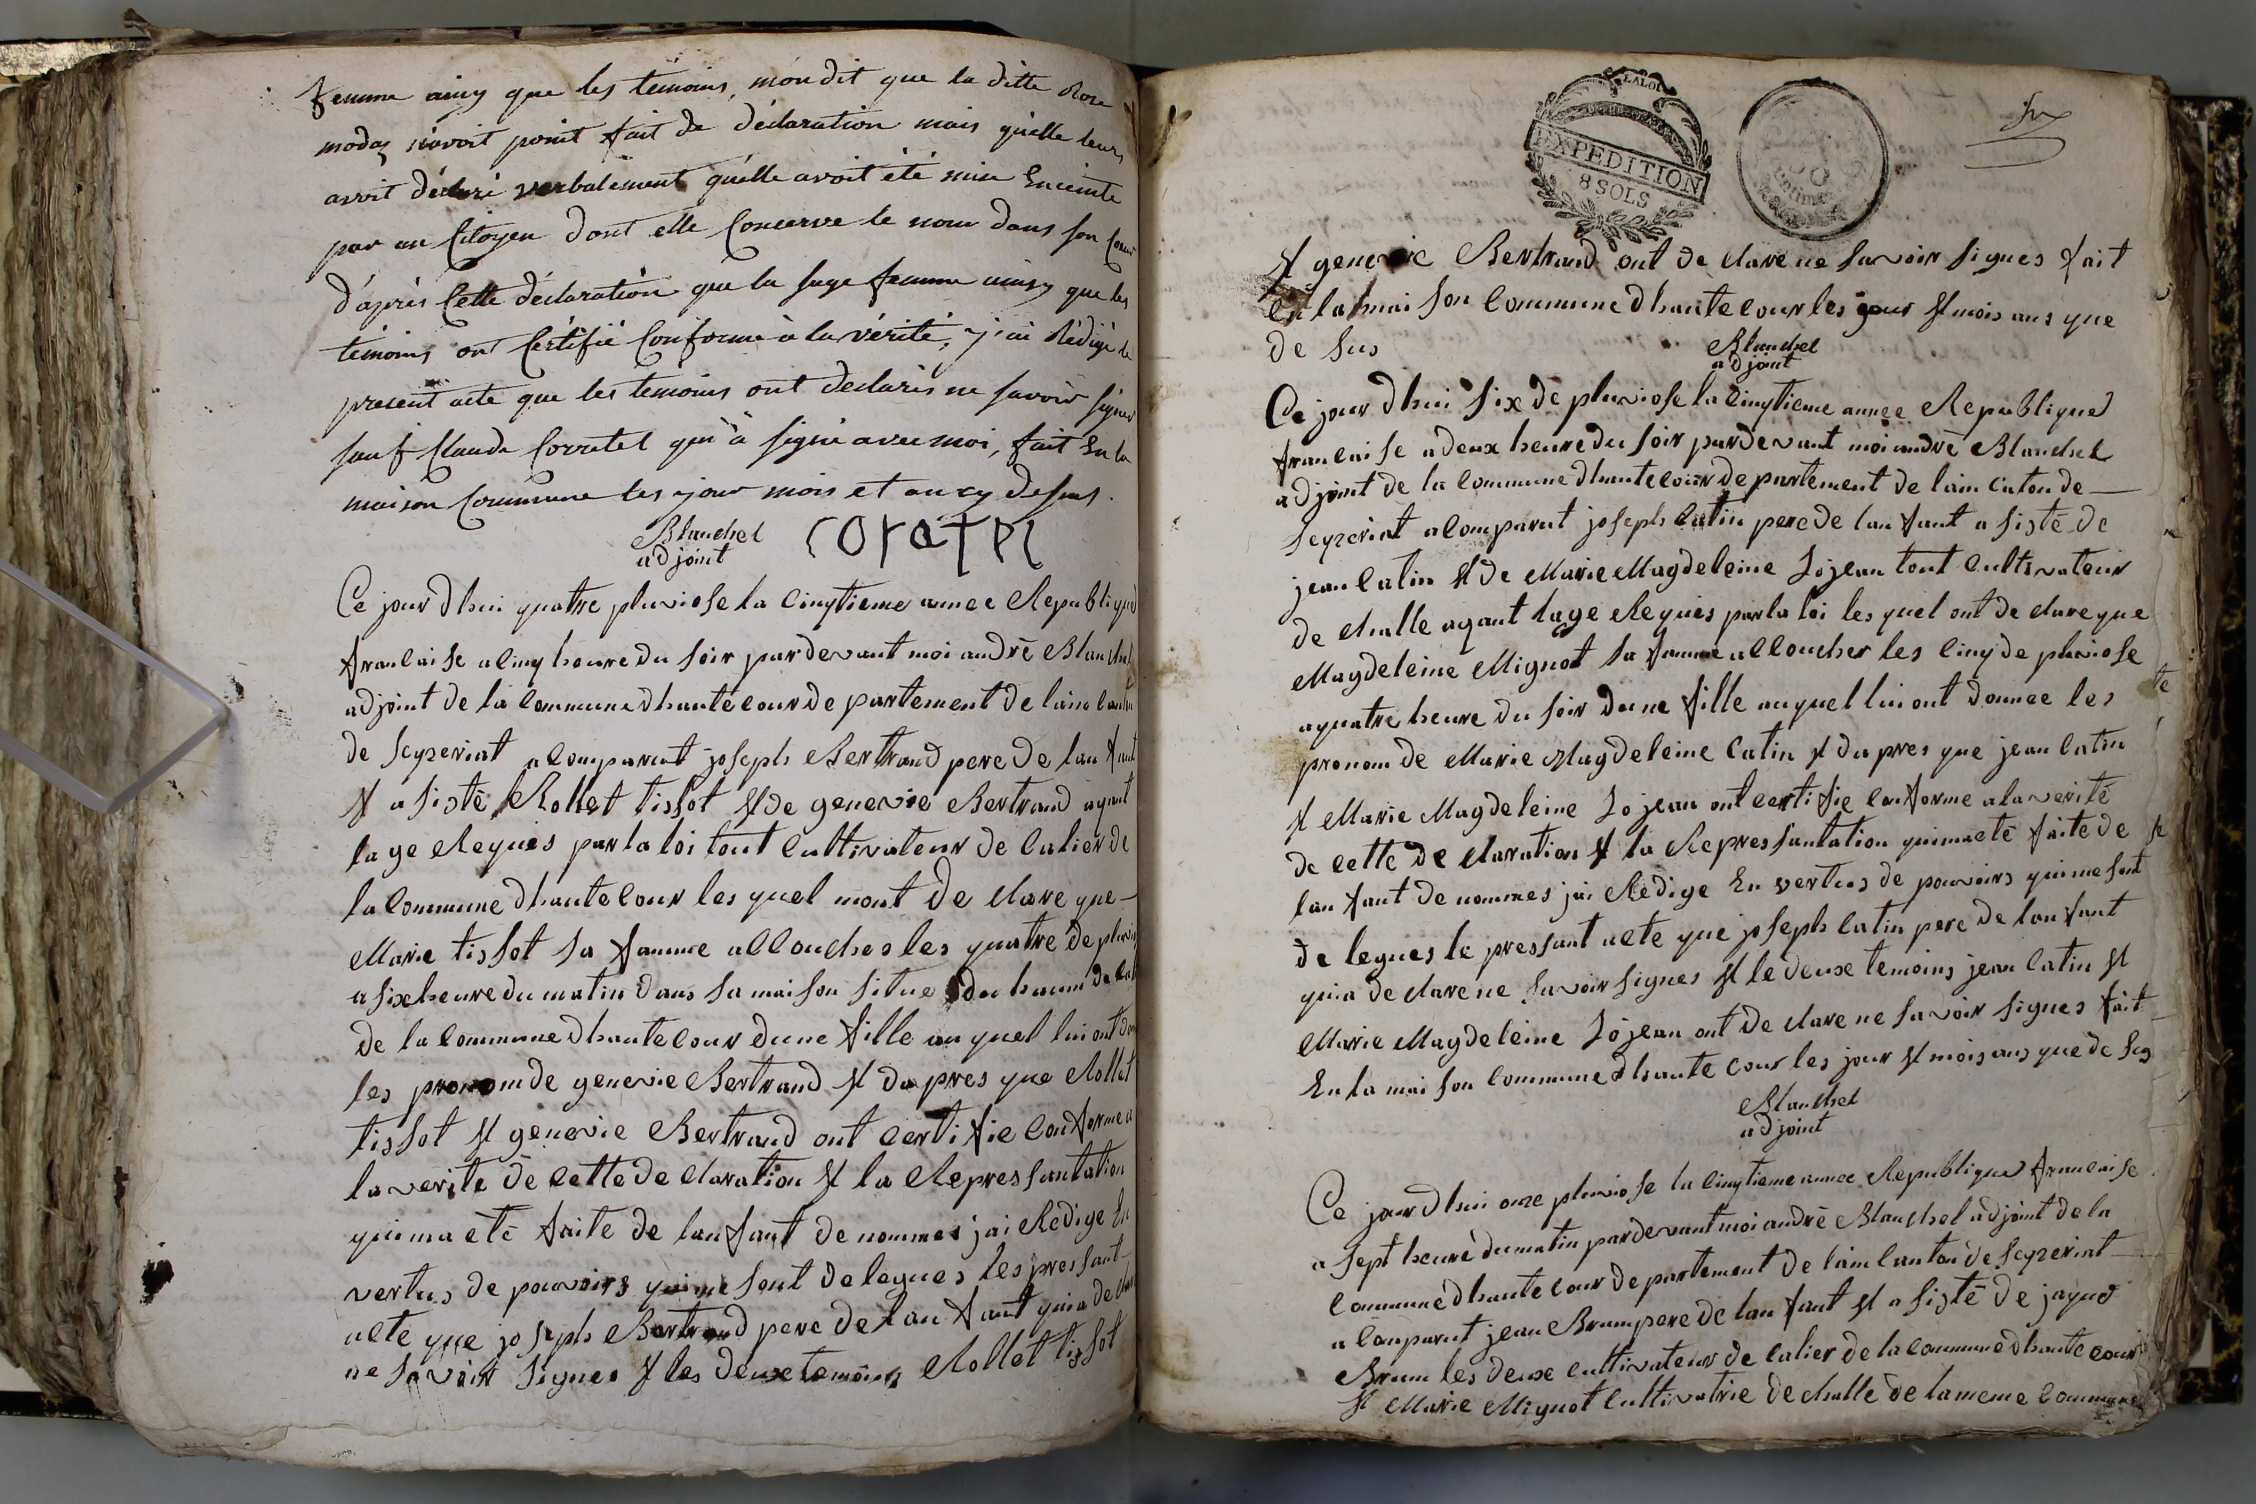 femme ainsy que les témoins, m'on dit que la ditte Rose
modaz n'avoit point fait de déclaration mais qu'elle leurs
avoit déclaré verbalement qu'elle avoit été mise Enceinte
par un Citoyen dont elle Concerve le nom dans son Cœur
d'après Cette déclaration que la sage femme ainsy que les
témoins ont Certifié Conforme à la vérité, j'ai Rédigé le
present acte que les temoins ont declarés ne savoir signer
sauf Claude Corratel qui à signé avec moi, fait En la
maison Commune les jour mois et an cy dessus.
Blanchet
adjoint
coratel
Ce jour dhui quatre pluviose la cinqtieme annee Republique
francaise a cinq heure du soir pardevant moi andrè Blanchet
adjoint de la commune dhautecour departement de lain canton
de seyzeriat a comparut joseph Bertrand pere de lanfant
et a sistè Rollet tissot et de genevie Bertrand ayant
lage Requis par la loi tout cultivateur de calier de
la commune dhautecour les quel mont de clare que
Marie tissot sa famme accouches les quatre de pluvio
a six heure du matin dans sa maison situe du hamu de
de la commune dhautecour dune fille au quel lui ont
les pronom de genevie Bertrand et dapres que Rollet
tissot et genevie Bertrand ont certifie conforme a
la verite de cette de claration et la Repressantation
qui ma etè faite de lanfant de nommes jai Redige En
vertus de pouvoirs qui me sont delegues les pressant
acte que joseph Bertrand pere de lanfant qui a de
ne savoir signes et les deux temoins Rollet tissot
LA LOI
EXPEDITION
8 SOLS
et genevie Bertrand ont de clare ne savoir signes fait
En la maison commune dhautecour les jour et mois ans que
de sus
Blanchet
adjoint
Ce jour dhui six de pluviose la cinqtieme annee Republique
francaise a deux heure du soir pardevant moi andrè Blanchet
adjoint de la commune dhautecour departement de lain caton de
seyzeriat a comparut joseph catin pere de lanfant a sistè de
jean catin et de Marie Magdeleine Jojean tout cultivateur
de challe ayant lage Requis par la loi les quel ont de clare que
Magdeleine Mignot sa famme accoucher les cinq de pluviose
a quatre heure du soir dune fille auquel lui ont donnee les
pronom de Marie Magdeleine catin et dapres que jean catin
et Marie Magdeleine Jojean ont certifie conforme a la veritè
de cette de claration et la Repressantation qui ma etè faite de
lanfant de nommes jai Rèdige En vertus de pouvoirs qui me sont
de legues le pressant acte que joseph catin pere de lanfant
qui a de clare ne savoir signes et le deux temoins jean catin et
Marie Magdeleine Jojean ont de clare ne savoir signes fait
En la maison commune dhautecour les jour et mois ans que de sus
Blanchet
adjoint
Ce jour dhui onze pluviose la cinqtieme annee Republique francaise
a sept heure du matin pardevant moi andrè Blanchet adjoint de la
commune dhautecour departement de lain canton de seyzeriat
a comparut jean Brun pere de lanfant et a sistè de jaque
Brun les deux cultivateur de calier de la commune dhautecour
et Marie Mignot cultivatrie de challe de la meme commune